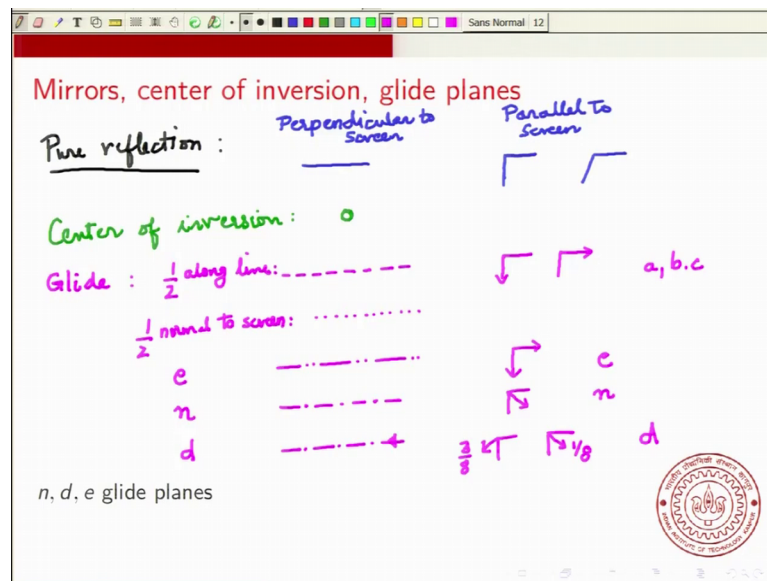 Sans Normal 12
Mirrors, center of inversion, glide planes
Perpendicular to Screen
Parallel To Screen
Pure reflection :
Center of inversion :
Glide : 1/2 along line: a, b.c
1/2 normal to screen:
e e
n n
d 3/8 1/8 d
n, d, e glide planes
INDIAN INSTITUTE OF TECHNOLOGY KANPUR